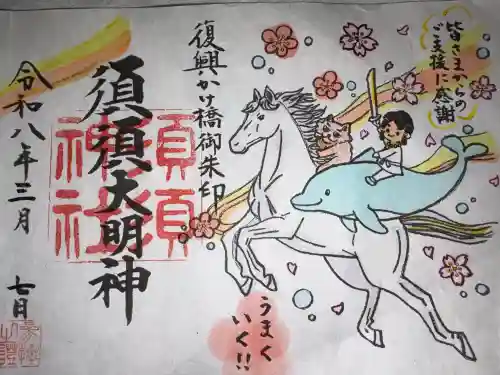 皆さまからの
ご支援に感謝
復興かけ橋御朱印
須須大明神
須須
神社
令和八年三月
七日
うまく
いく!!